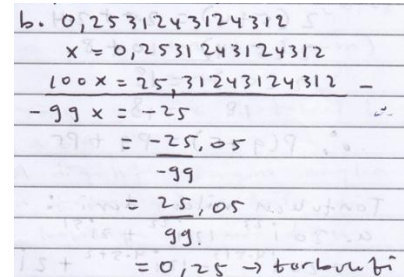 b. 0,25312431243​12
x = 0,2531243124312
100x = 25,31243124312 -
-99x = -25
= -25,05
-99
= 25,05
99.
= 0,25 → terbukti